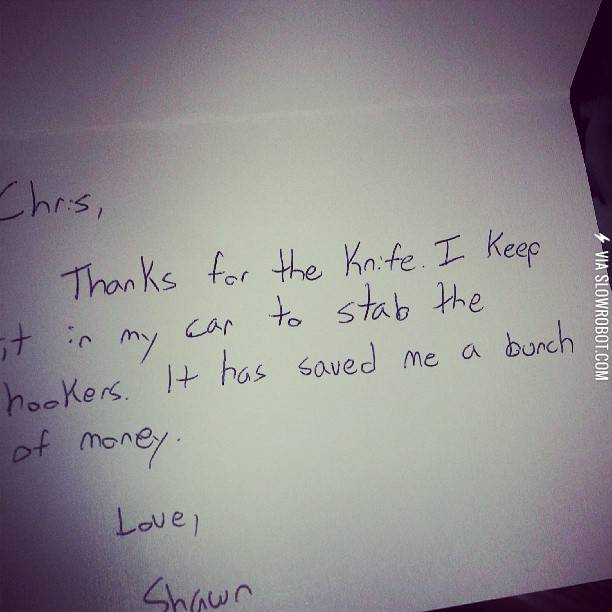 Chris,
Thanks for the Knife. I Keep
it in my car to stab the
hookers. It has saved me a bunch
of money.
Love,
Shawn
VIA SLOWROBOT.COM